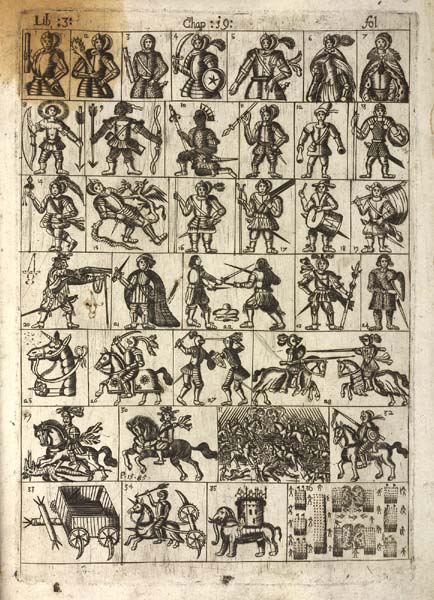 Lib :3: Chap :19: fol
2 3 4 5 6 7
8 9 10 12 13
15 16 17 18 19
20 21 22 23 24
25 26 27 28
29 30 32
33 34 35 36